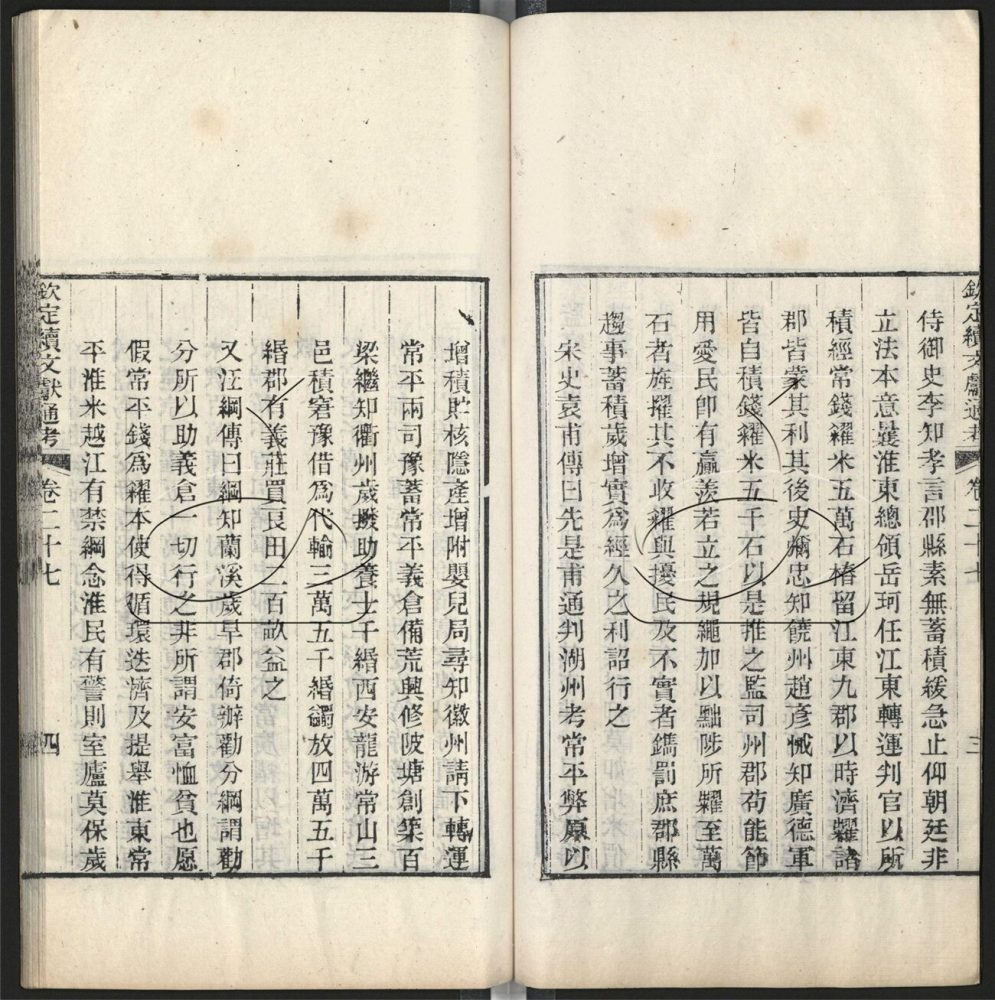 欽定續文獻通考 卷二十七 三
侍御史李知孝言郡縣素無蓄積緩急止仰朝廷非
立法本意曩淮東總領岳珂任江東轉運判官以所
積經常錢糴米五萬石樁留江東九郡以時濟糶諸
郡皆蒙其利其後史彌忠知饒州趙彥悈知廣德軍
皆自積錢糴米五千石以是推之監司州郡苟能節
用愛民卽有贏羨若立之規繩加以黜陟所糴至萬
石者旌擢其不收糴與擾民及不實者鐫罰庶郡縣
趨事蓄積歲增實爲經久之利詔行之
宋史袁甫傳曰先是甫通判湖州考常平弊原以
增積貯核隱產增附嬰兒局尋知徽州請下轉運
常平兩司豫蓄常平義倉備荒興修陂塘創築百
梁繼知衢州歲撥助養士千緡西安龍游常山三
邑積窘豫借爲代輸三萬五千緡蠲放四萬五千
緡郡有義莊買良田二百畝益之
又汪綱傳曰綱知蘭溪歲旱郡倚辦勸分綱謂勸
分所以助義倉一切行之非所謂安富恤貧也願
假常平錢爲糴本使得循環迭濟及提舉淮東常
平淮米越江有禁綱念淮民有警則室廬莫保歲
欽定續文獻通考 卷二十七 四